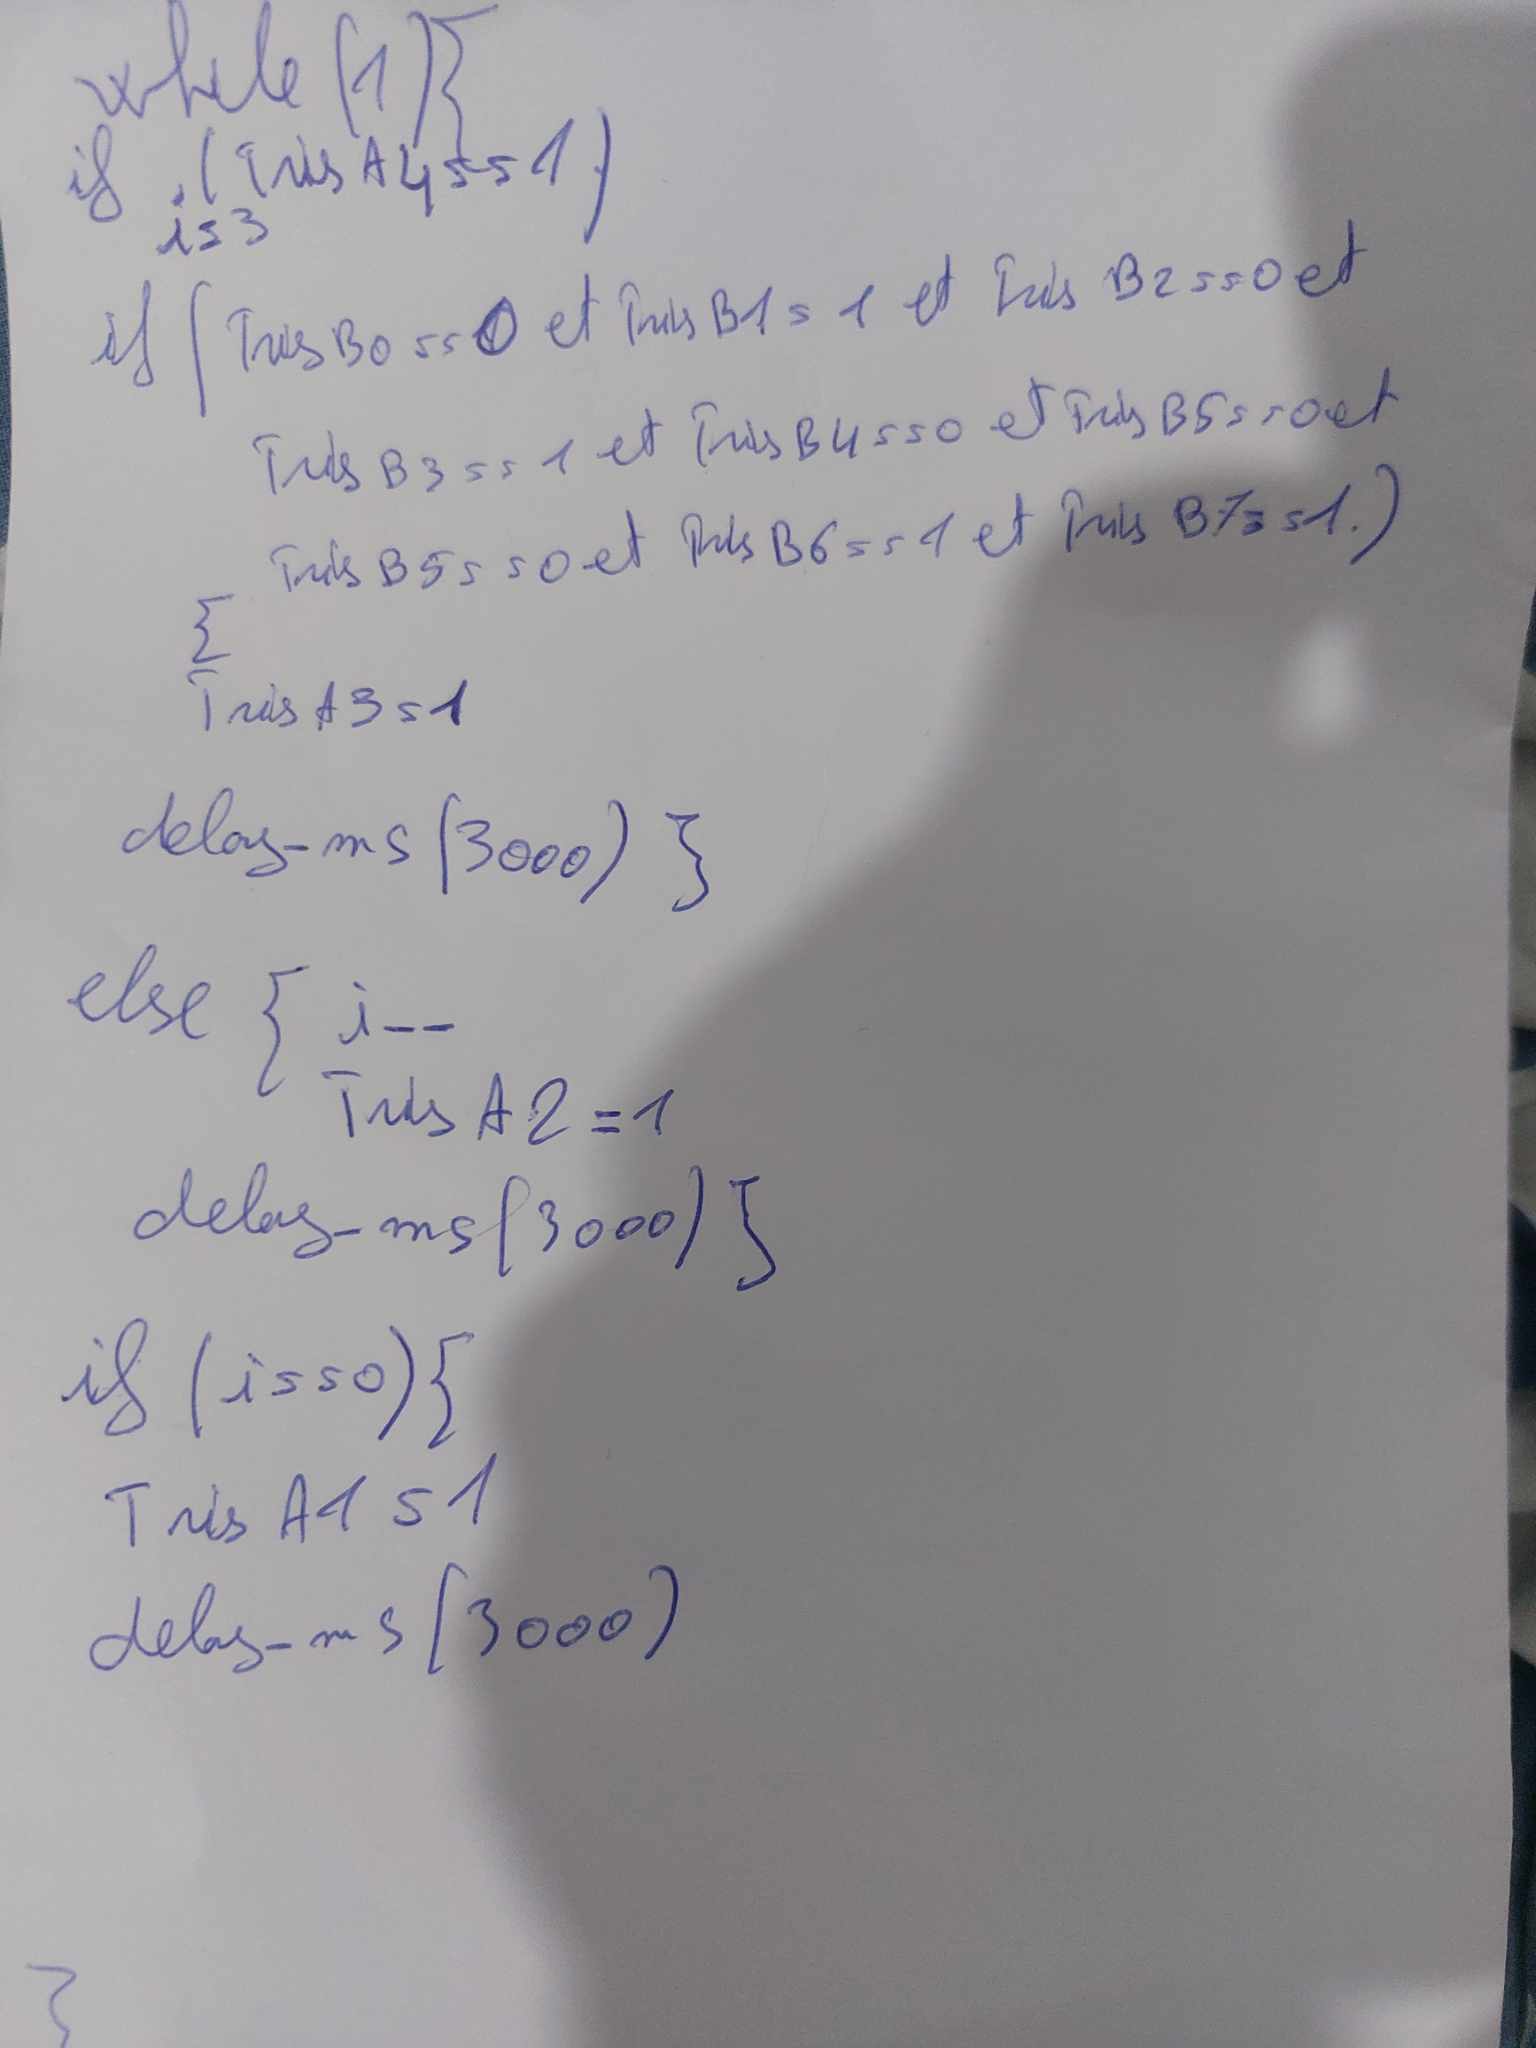 while (1){
if (Tris A4 == 1)
i = 3
if (Tris B0 == 0 et Tris B1 = 1 et Tris B2 == 0 et
Tris B3 == 1 et Tris B4 == 0 et Tris B5 == 0 et
Tris B5 == 0 et Tris B6 == 1 et Tris B7 == 1.)
{
Tris A3 = 1
delay-ms (3000) }
else { i--
Tris A2 = 1
delay-ms (3000) }
if (i == 0) {
Tris A1 = 1
delay-ms (3000)
}